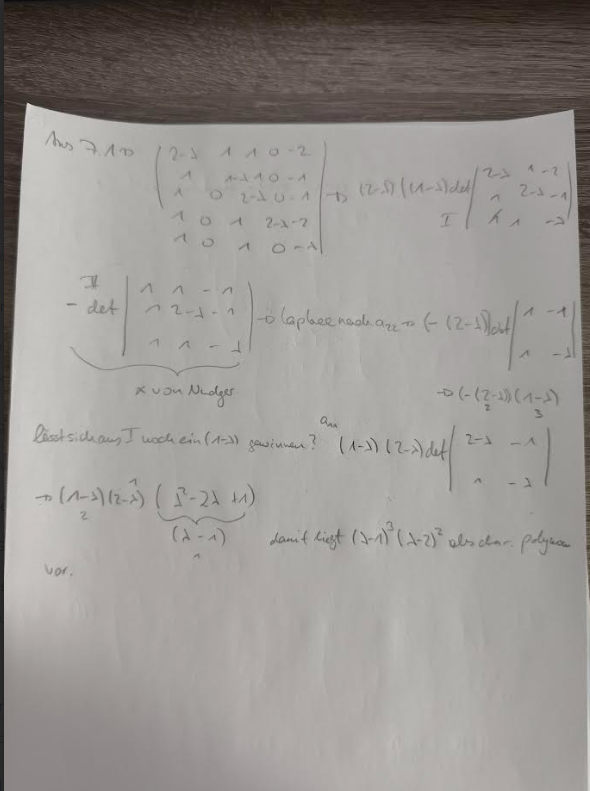 Aus 7.1 → ( 2-λ 1 1 0 -2
1 1-λ 1 0 -1
1 0 2-λ 0 -1 → (2-λ) ((1-λ) det | 2-λ 1 -2
1 0 1 2-λ -2 1 2-λ -1
1 0 1 0 -λ | I 1 1 -λ |
II
- det | 1 1 -1
1 2-λ -1 → Laplace nach a22 → (-(2-λ)) det | 1 -1
1 1 -λ | 1 -λ |
x von → (-(2-λ)) (1-λ)
2 3
lässt sich aus I noch ein (1-λ) gewinnen? a11 (1-λ) (2-λ) det | 2-λ -1
1 -λ |
→ (1-λ) (2-λ) ( λ² - 2λ + 1)
2 1 (λ - 1) damit liegt (λ-1)³ (λ-2)² als char. polynom
1
vor.